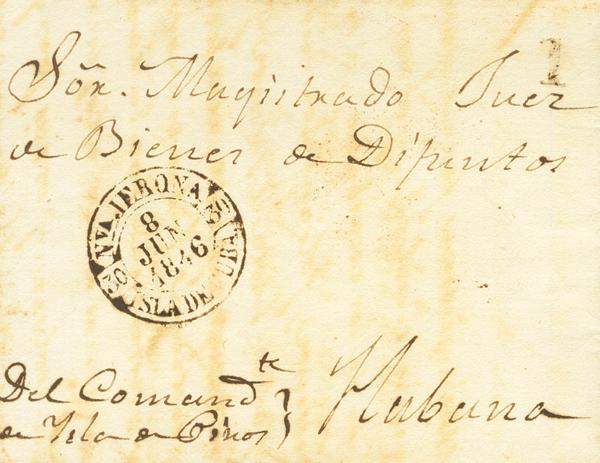 1
Sōr. Magistrado Juez
de Bienes de Difuntos
Nᵛᵃ JERONA
30 30
8
JUN
1846
ISLA DE CUBA
Del Comandᵗᵉ
de Isla de Pinos
Habana